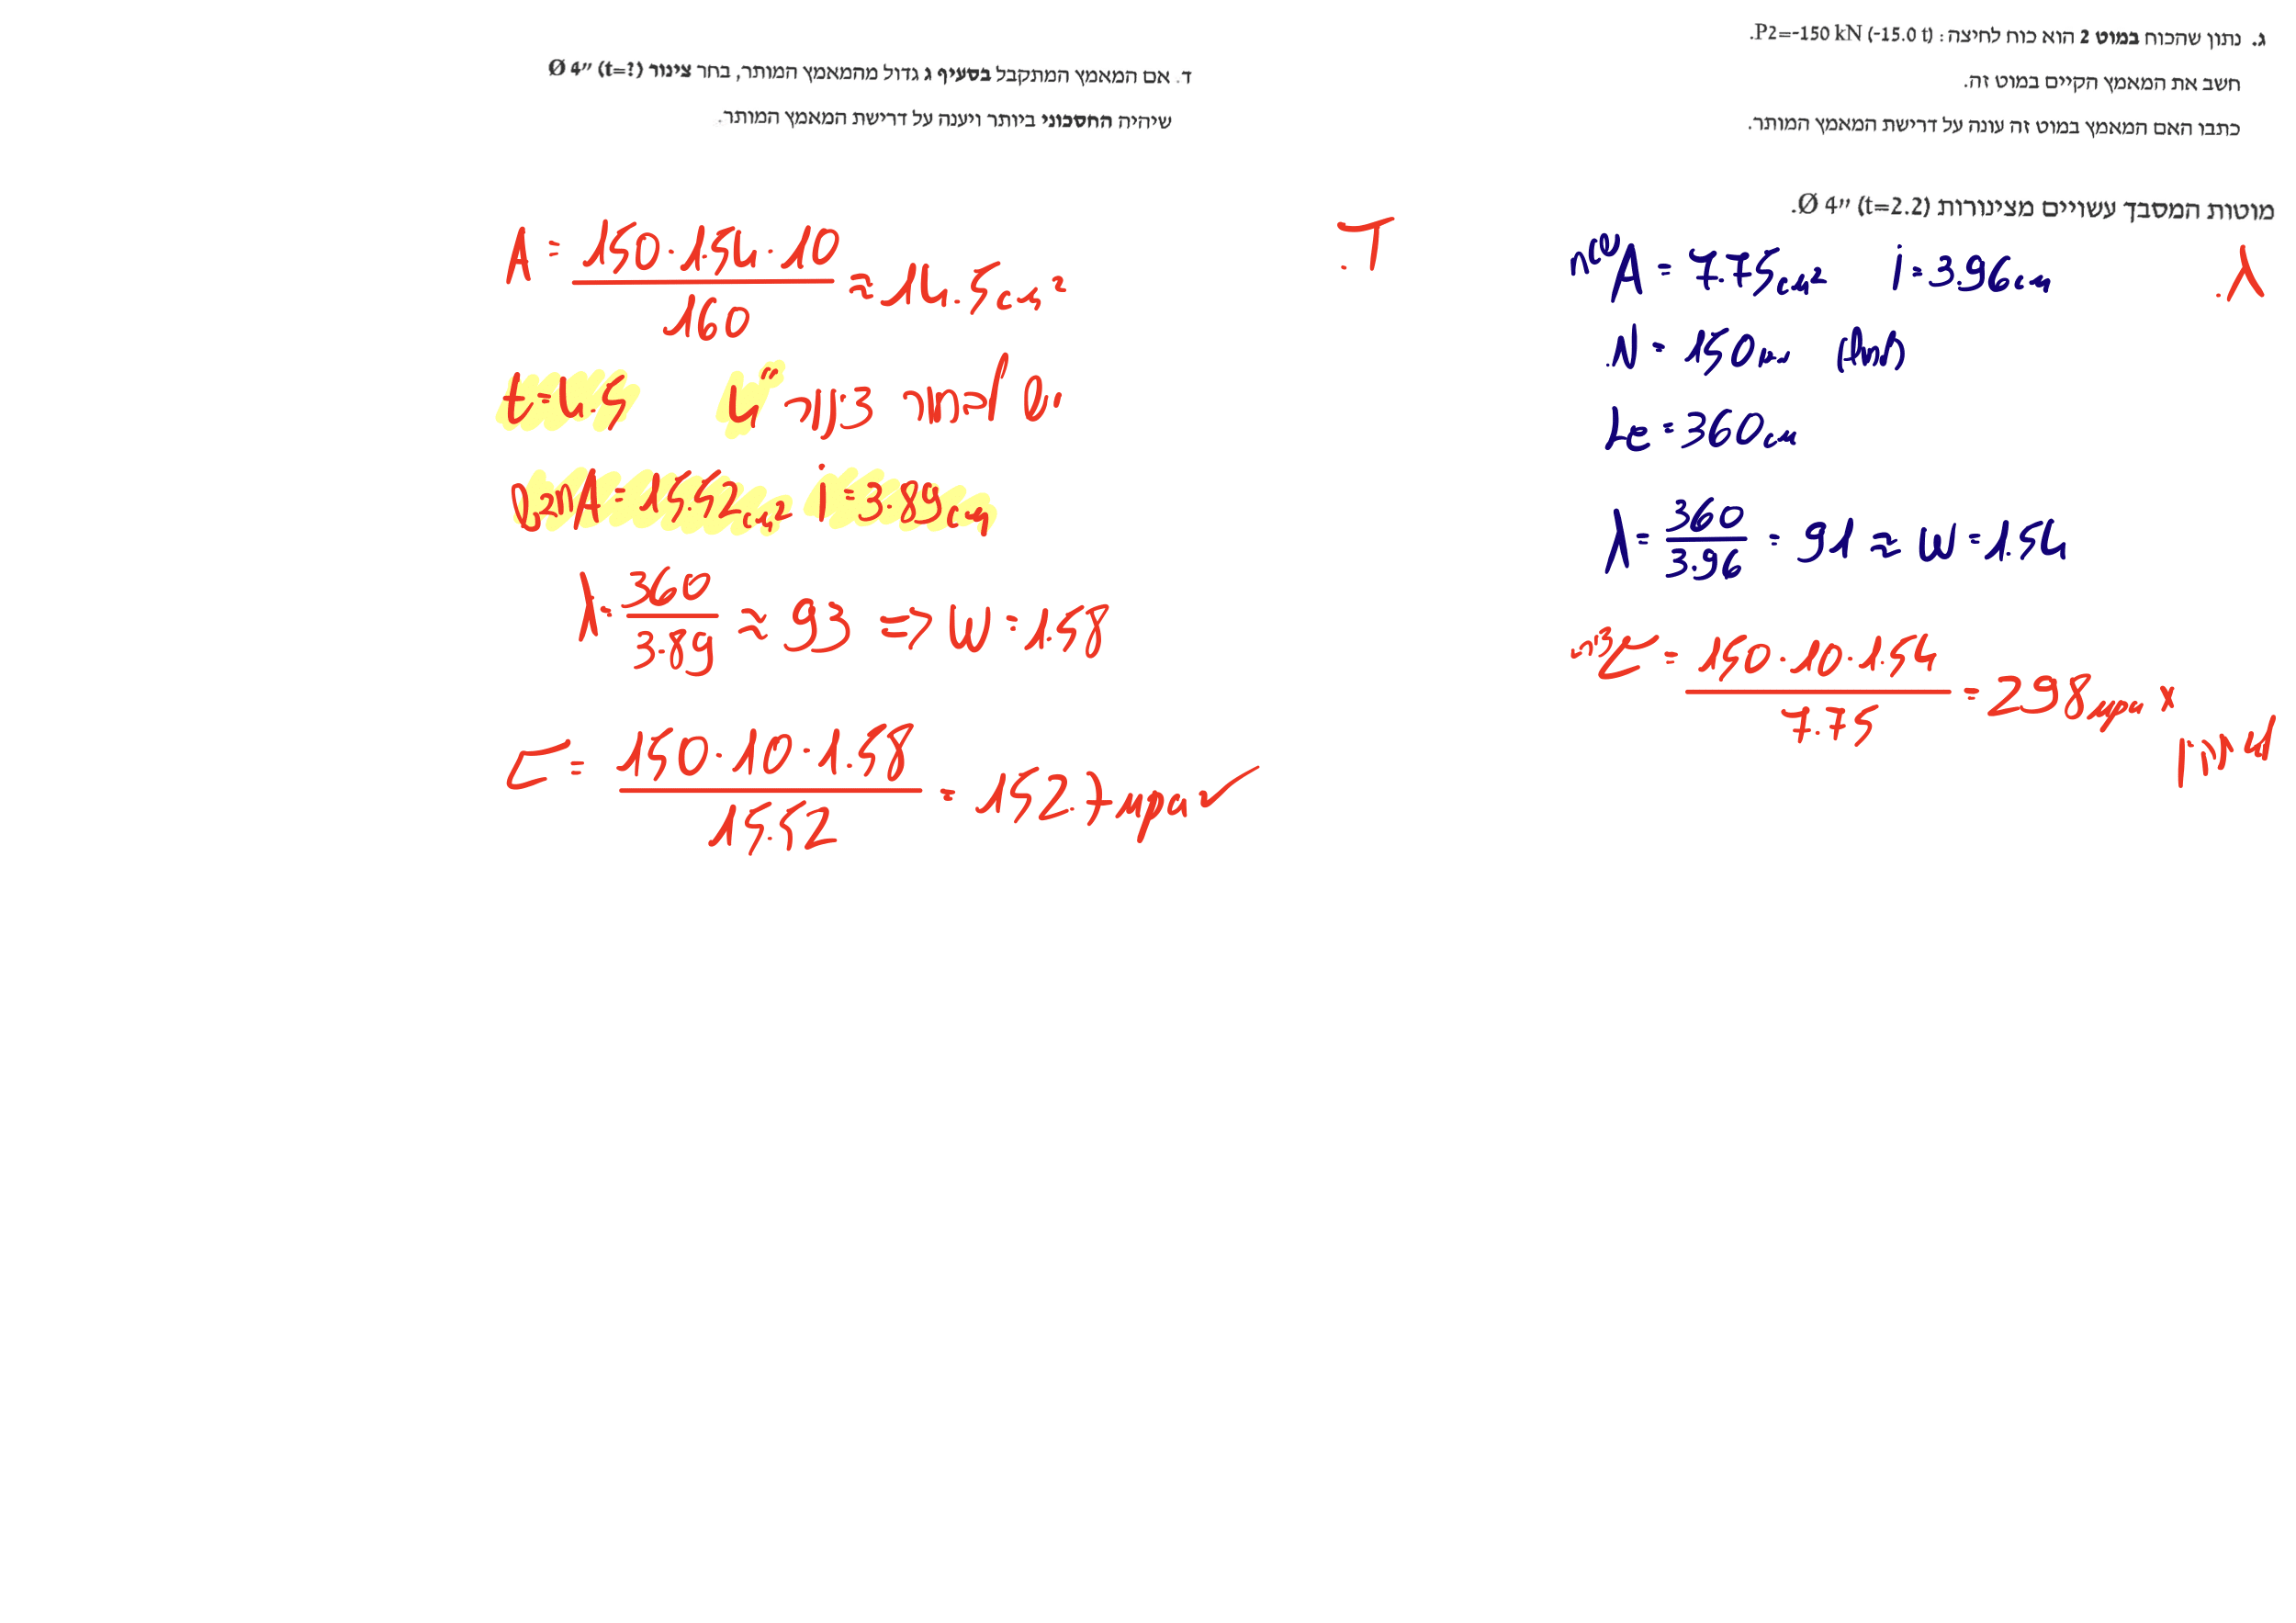 ג. נתון שהכוח במוט 2 הוא כוח לחיצה : P2=-150 kN (-15.0 t).
חשב את המאמץ הקיים במוט זה.
כתבו האם המאמץ במוט זה עונה על דרישת המאמץ המותר.
מוטות המסבך עשויים מצינורות Ø 4״ (t=2.2).
ג.
A = 7.75cm² i=3.96cm
N = 150kN
Le=360cm
λ= 360/3.96 = 91 ≈ w=1.54
= 150·10·1.54/7.75 = 298mpa x
ד. אם המאמץ המתקבל בסעיף ג גדול מהמאמץ המותר, בחר צינור Ø 4״ (t=?)
שיהיה החסכוני ביותר ויענה על דרישת המאמץ המותר.
ד.
A = 150·1.54·10/160 ≈ 14.5cm²
יש לבחור צינור 4" t=4.5
A=15.52cm² i=3.89cm
λ= 360/3.89 ≈ 93 => w=1.58
= 150·10·1.58/15.52 = 152.7mpa ✓